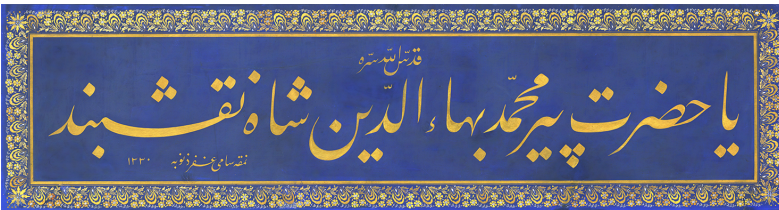 قدّس اللّه سرّه
يا حضرت پير محمّد بهاء الدّين شاه نقشبند
نمقه سامى غفر ذنوبه ١٣٣٠